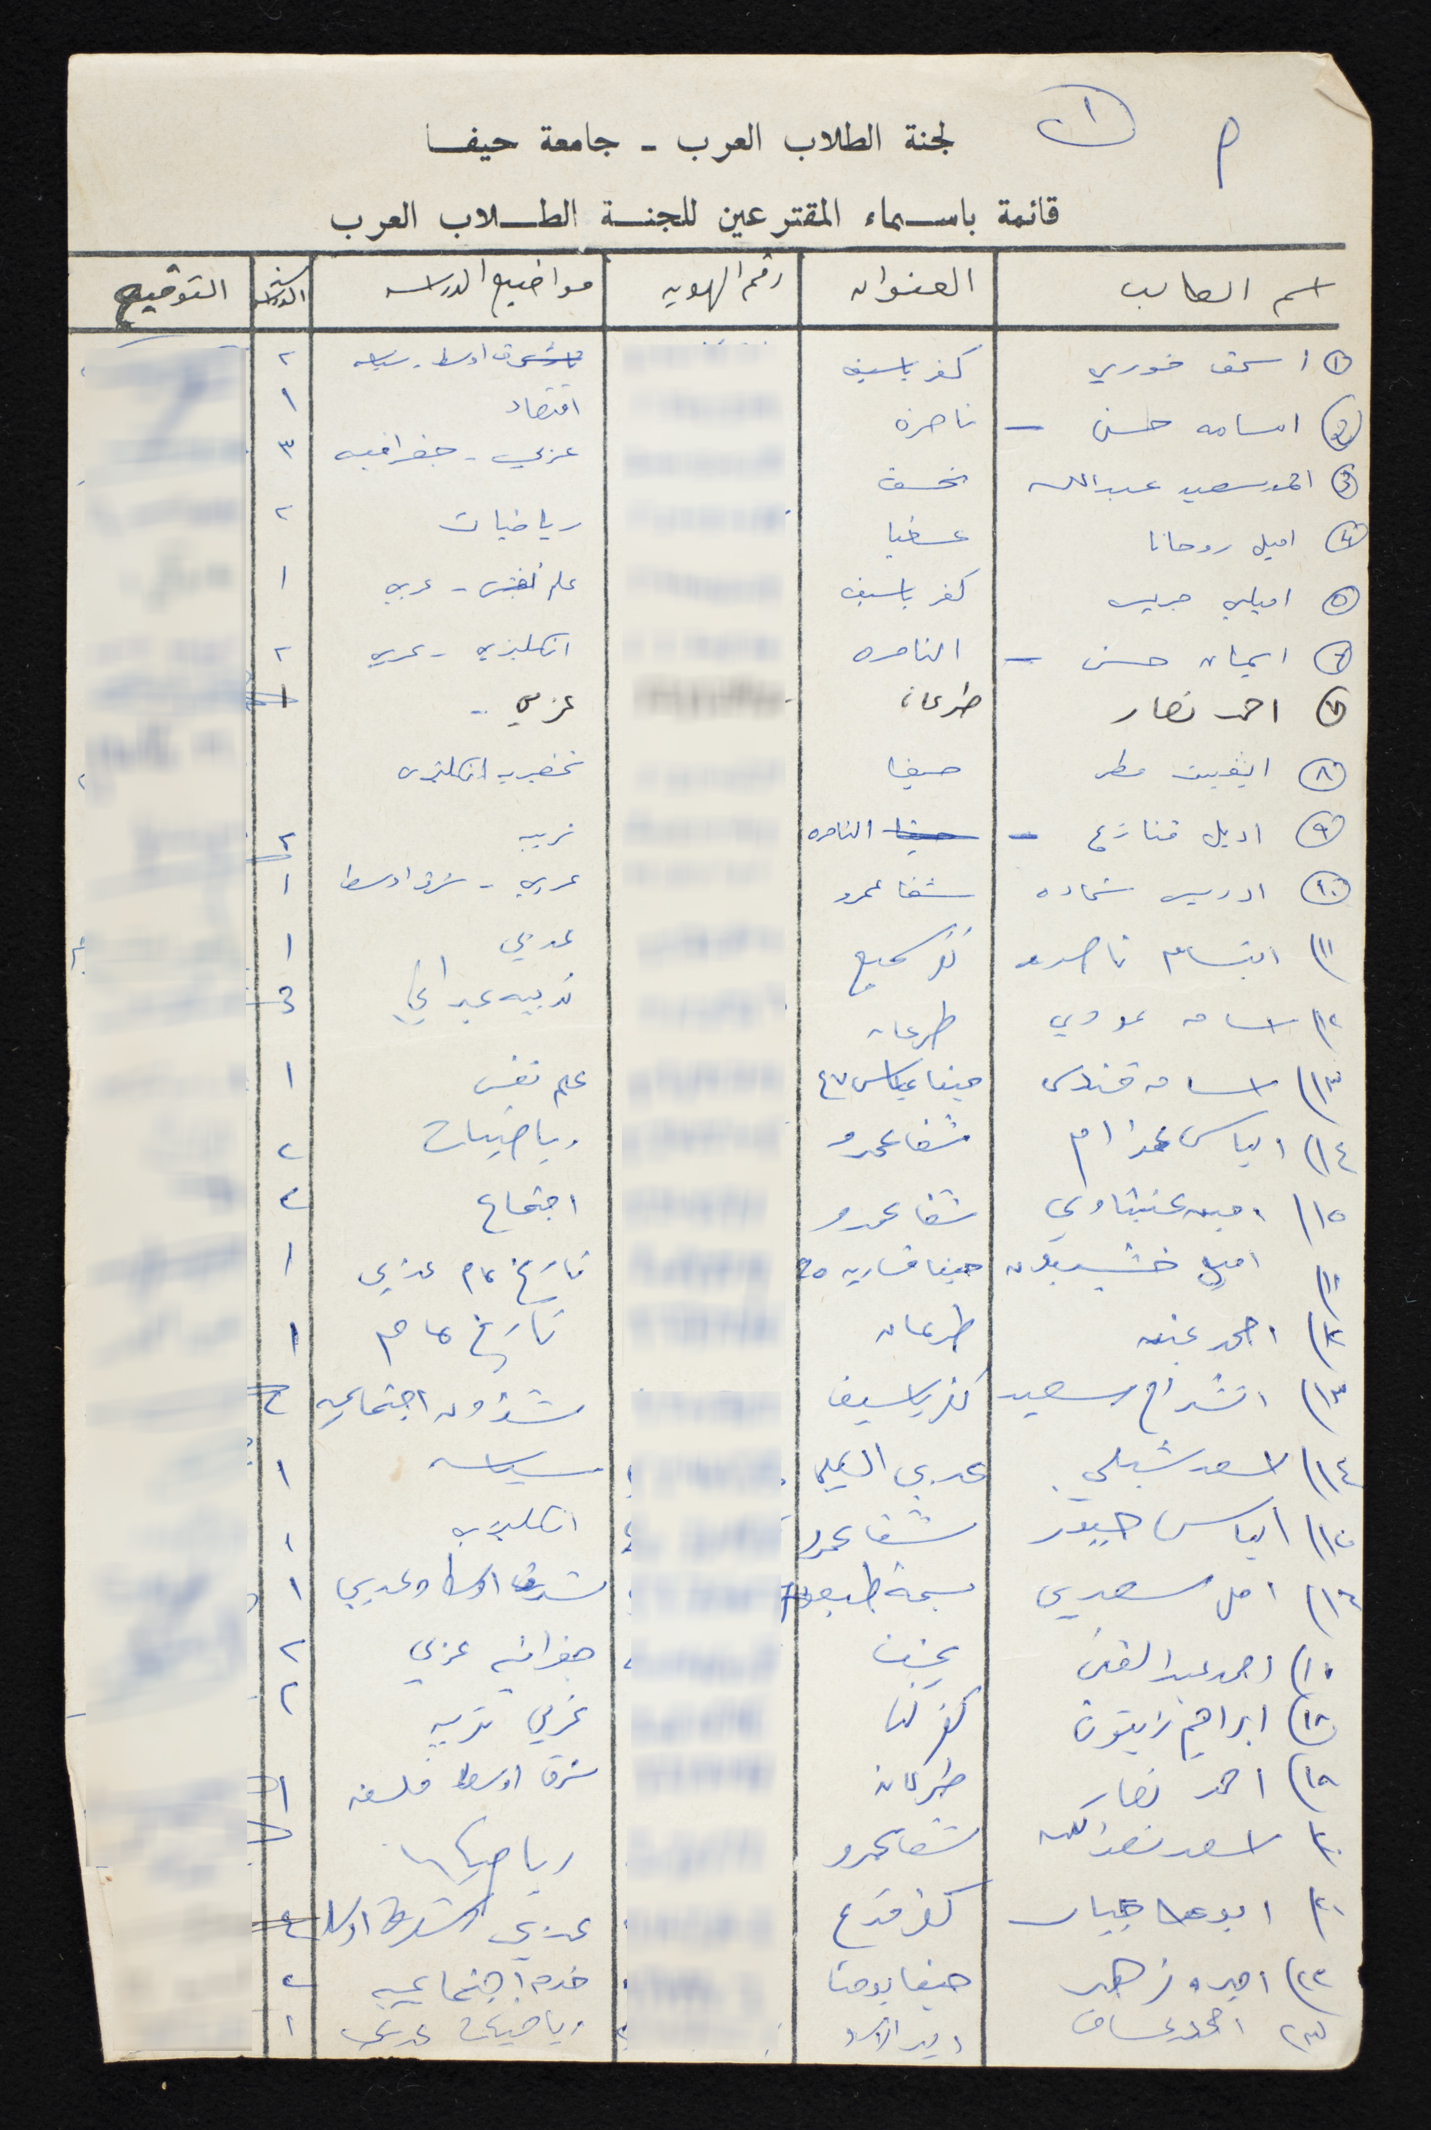 ١
م
لجنة الطلاب العرب - جامعة حيفا
قائمة باسماء المقترعين للجنة الطلاب العرب
اسم الطالب العنوان رقم الهويه مواضيع الدراسه سنة الدراسه التوقيع
١ اسحق خوري كفر ياسيف شرق اوسط - سياسه ٢
٢ اسامه حسن - ناصرة اقتصاد ١
٣ احمد سعيد عبدالله نحف عربي - جغرافيه ٣
٤ اميل روحانا عسفيا رياضيات ٢
٥ اميلي كفر ياسيف علم نفس - عربي ١
٦ ايمان حسن - الناصره انكليزي - عربي ٢
٧ احمد نصار طرعان عربي - ١
٨ مطر حيفا انكليزي
٩ اديل قنازع - حيفا الناصره تربيه ٢
١٠ ادريس شحاده شفا عمرو عربي - شرق اوسط ١
١١ ابتسام ناصر كفر سميع عربي ١
١٢ اسامه طرعان تربيه 3
١٣ اسامه حيفا عباس ٤٧ علم نفس ١
١٤ الياس شفا عمرو رياضيات ٢
١٥ عنبتاوي شفا عمرو اجتماع ٢
١١ اميل خشيبون حيفا قساريه ٢٥ تاريخ عام عربي ١
١٢ احمد طرعان تاريخ عام ١
١٣ انشراح سعيد كفر ياسيف شؤون اجتماعيه ٢
١٤ اسعد شبلي عرب سياسه ١
١٥ الياس شفا عمرو انكليزي ١
١٦ امل سعدي بسمة طبعون شرق اوسط وعربي ١
احمد عبد الغني جغرافيه عربي ٢
١٨ ابراهيم زيتون كفر كنا عربي تربيه ٢
١٩ احمد نصار طرعان شرق اوسط فلسفه ١
٢٠ اسعد نصرالله شفا عمرو رياضيات
كفر قرع عربي شرق اوسط
٢٢ زهر حيفا خدمه اجتماعيه ٢
٢٣ احمد عساف دير الاسد رياضيات عربي ١